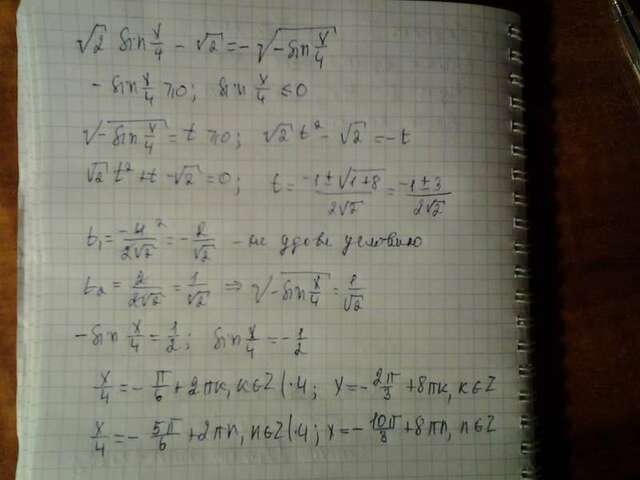 √2 sin x/4 - √2 = -√(-sin x/4)
- sin x/4 ≥ 0; sin x/4 ≤ 0
√(-sin x/4) = t ≥ 0; √2 t² - √2 = -t
√2 t² + t - √2 = 0; t = (-1 ± √(1+8))/(2√2) = (-1 ± 3)/(2√2)
t₁ = -4/(2√2) = -2/√2 - не удовл условию
t₂ = 2/(2√2) = 1/√2 ⇒ √(-sin x/4) = 1/√2
-sin x/4 = 1/2; sin x/4 = -1/2
x/4 = -π/6 + 2πk, k∈Z |·4; x = -2π/3 + 8πk, k∈Z
x/4 = -5π/6 + 2πn, n∈Z |·4; x = -10π/3 + 8πn, n∈Z